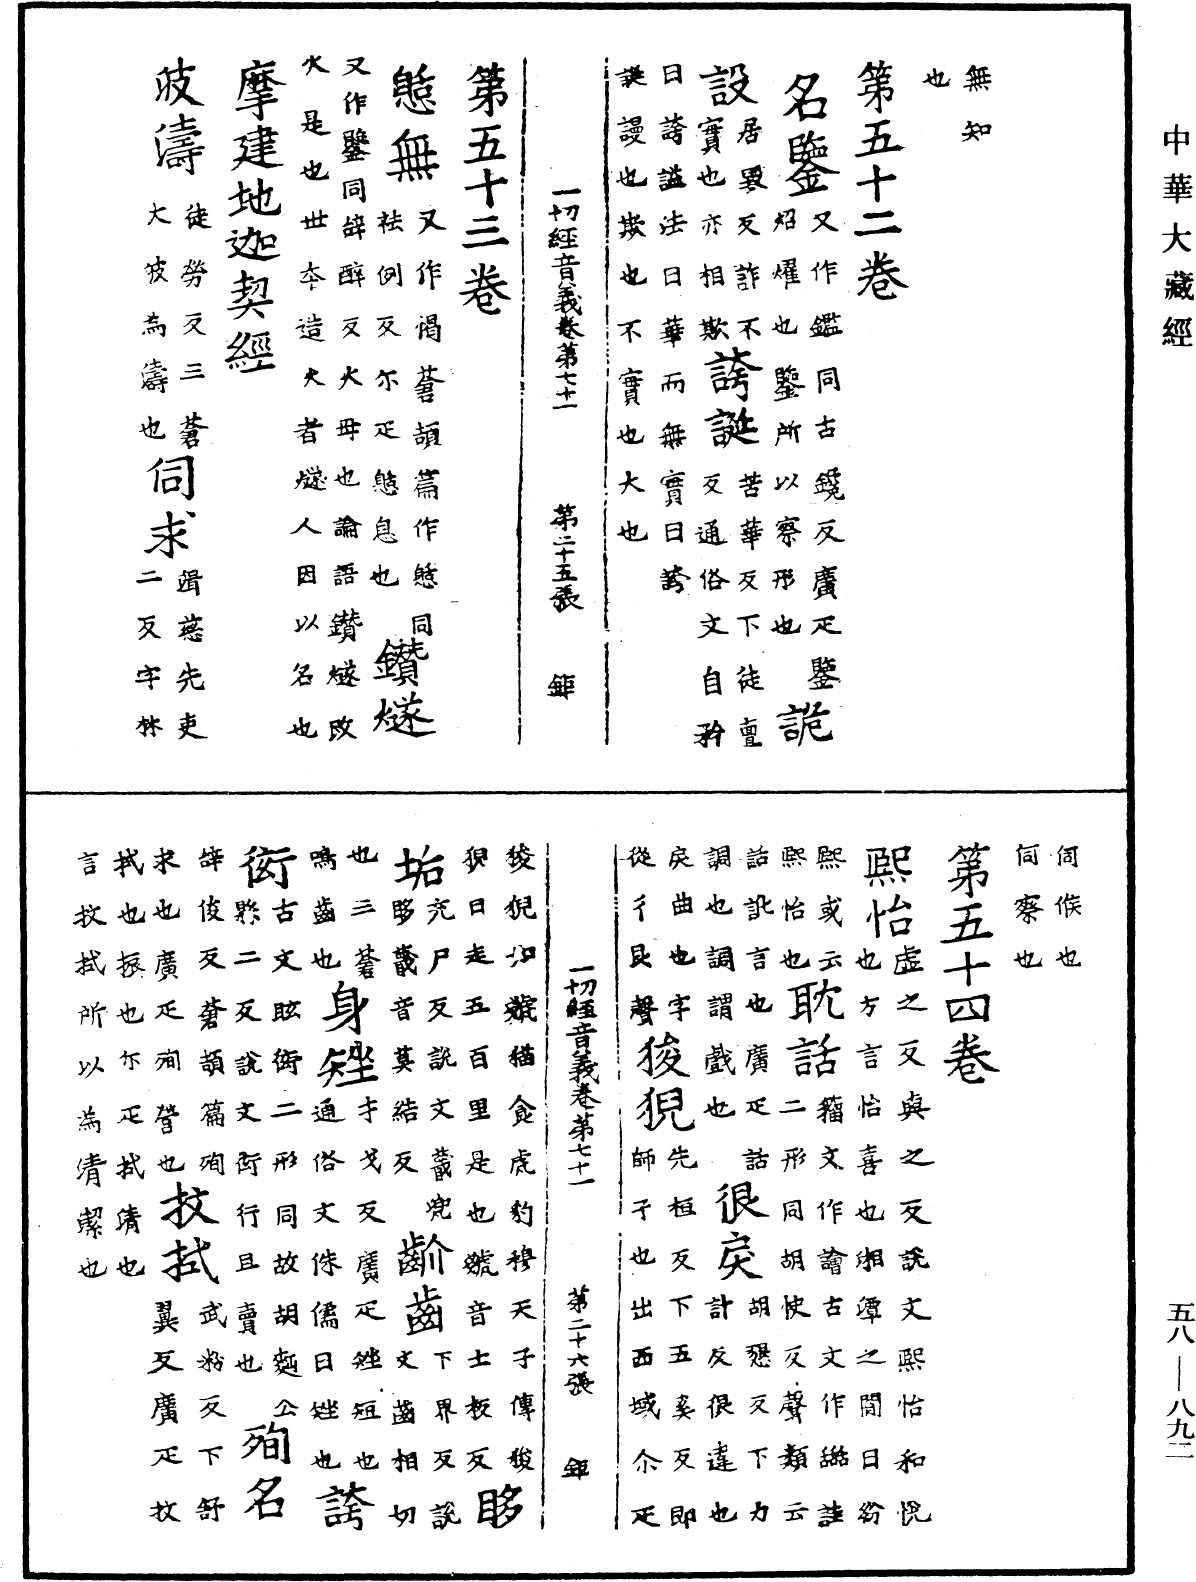 中華大藏經
無知
也
第五十二卷
名鑒又作鑑同古鑊反廣疋鑒
炤燿也鑒所以察形也詭
設居毀反詐不
實也亦相欺誇誕苦華反下徒亶
反通俗文自矜
曰誇謚法曰華而無實曰誇
誕謾也欺也不實也大也
一切經音義卷第七十一 第二十五張 鉅
第五十三卷
憩無又作愒蒼頡篇作憇同
祛例反尒疋憩息也鑽燧
又作鐆同辝醉反火母也論語鑽燧改
火是也世本造火者燧人因以名也
摩建地迦契經
波濤徒勞反三蒼
大波為濤也伺求胥慈先吏
二反字林
伺候也
伺察也
第五十四卷
熙怡虛之反與之反說文熙怡和悅
也方言怡喜也湘潭之間曰紛
熙或云
熙怡也耽話籀文作譮古文作䛡詿
二形同胡快反聲類云
話訛言也廣疋話
調也調謂戲也很戾胡懇反下力
計反很違也
戾曲也字
從彳艮聲狻猊先桓反下五奚反即
師子也出西域尒疋
一切經音義卷第七十一 第二十六張 鉅
狻猊如虦猫食虎豹穆天子傳狻
猊曰走五百里是也虦音士板反眵
垢充尸反說文䁾兜
眵䁾音莫結反齘齒下界反說
文齒相切
也三蒼
鳴齒也身矬才戈反廣疋矬短也
通俗文侏儒曰矬也誇
衒古文眩衒二形同故胡麪公
縣二反說文衒行且賣也殉名
辝俊反蒼頡篇殉
求也廣疋殉營也抆拭武粉反下舒
翼反廣疋抆
拭也振也尒疋拭清也
言抆拭所以為清潔也
五八—八九二